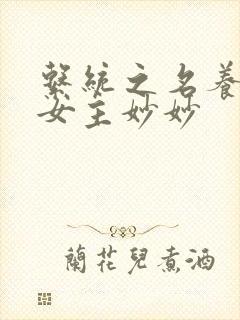 繫統之名養
女主妙妙
蘭花兒煮酒